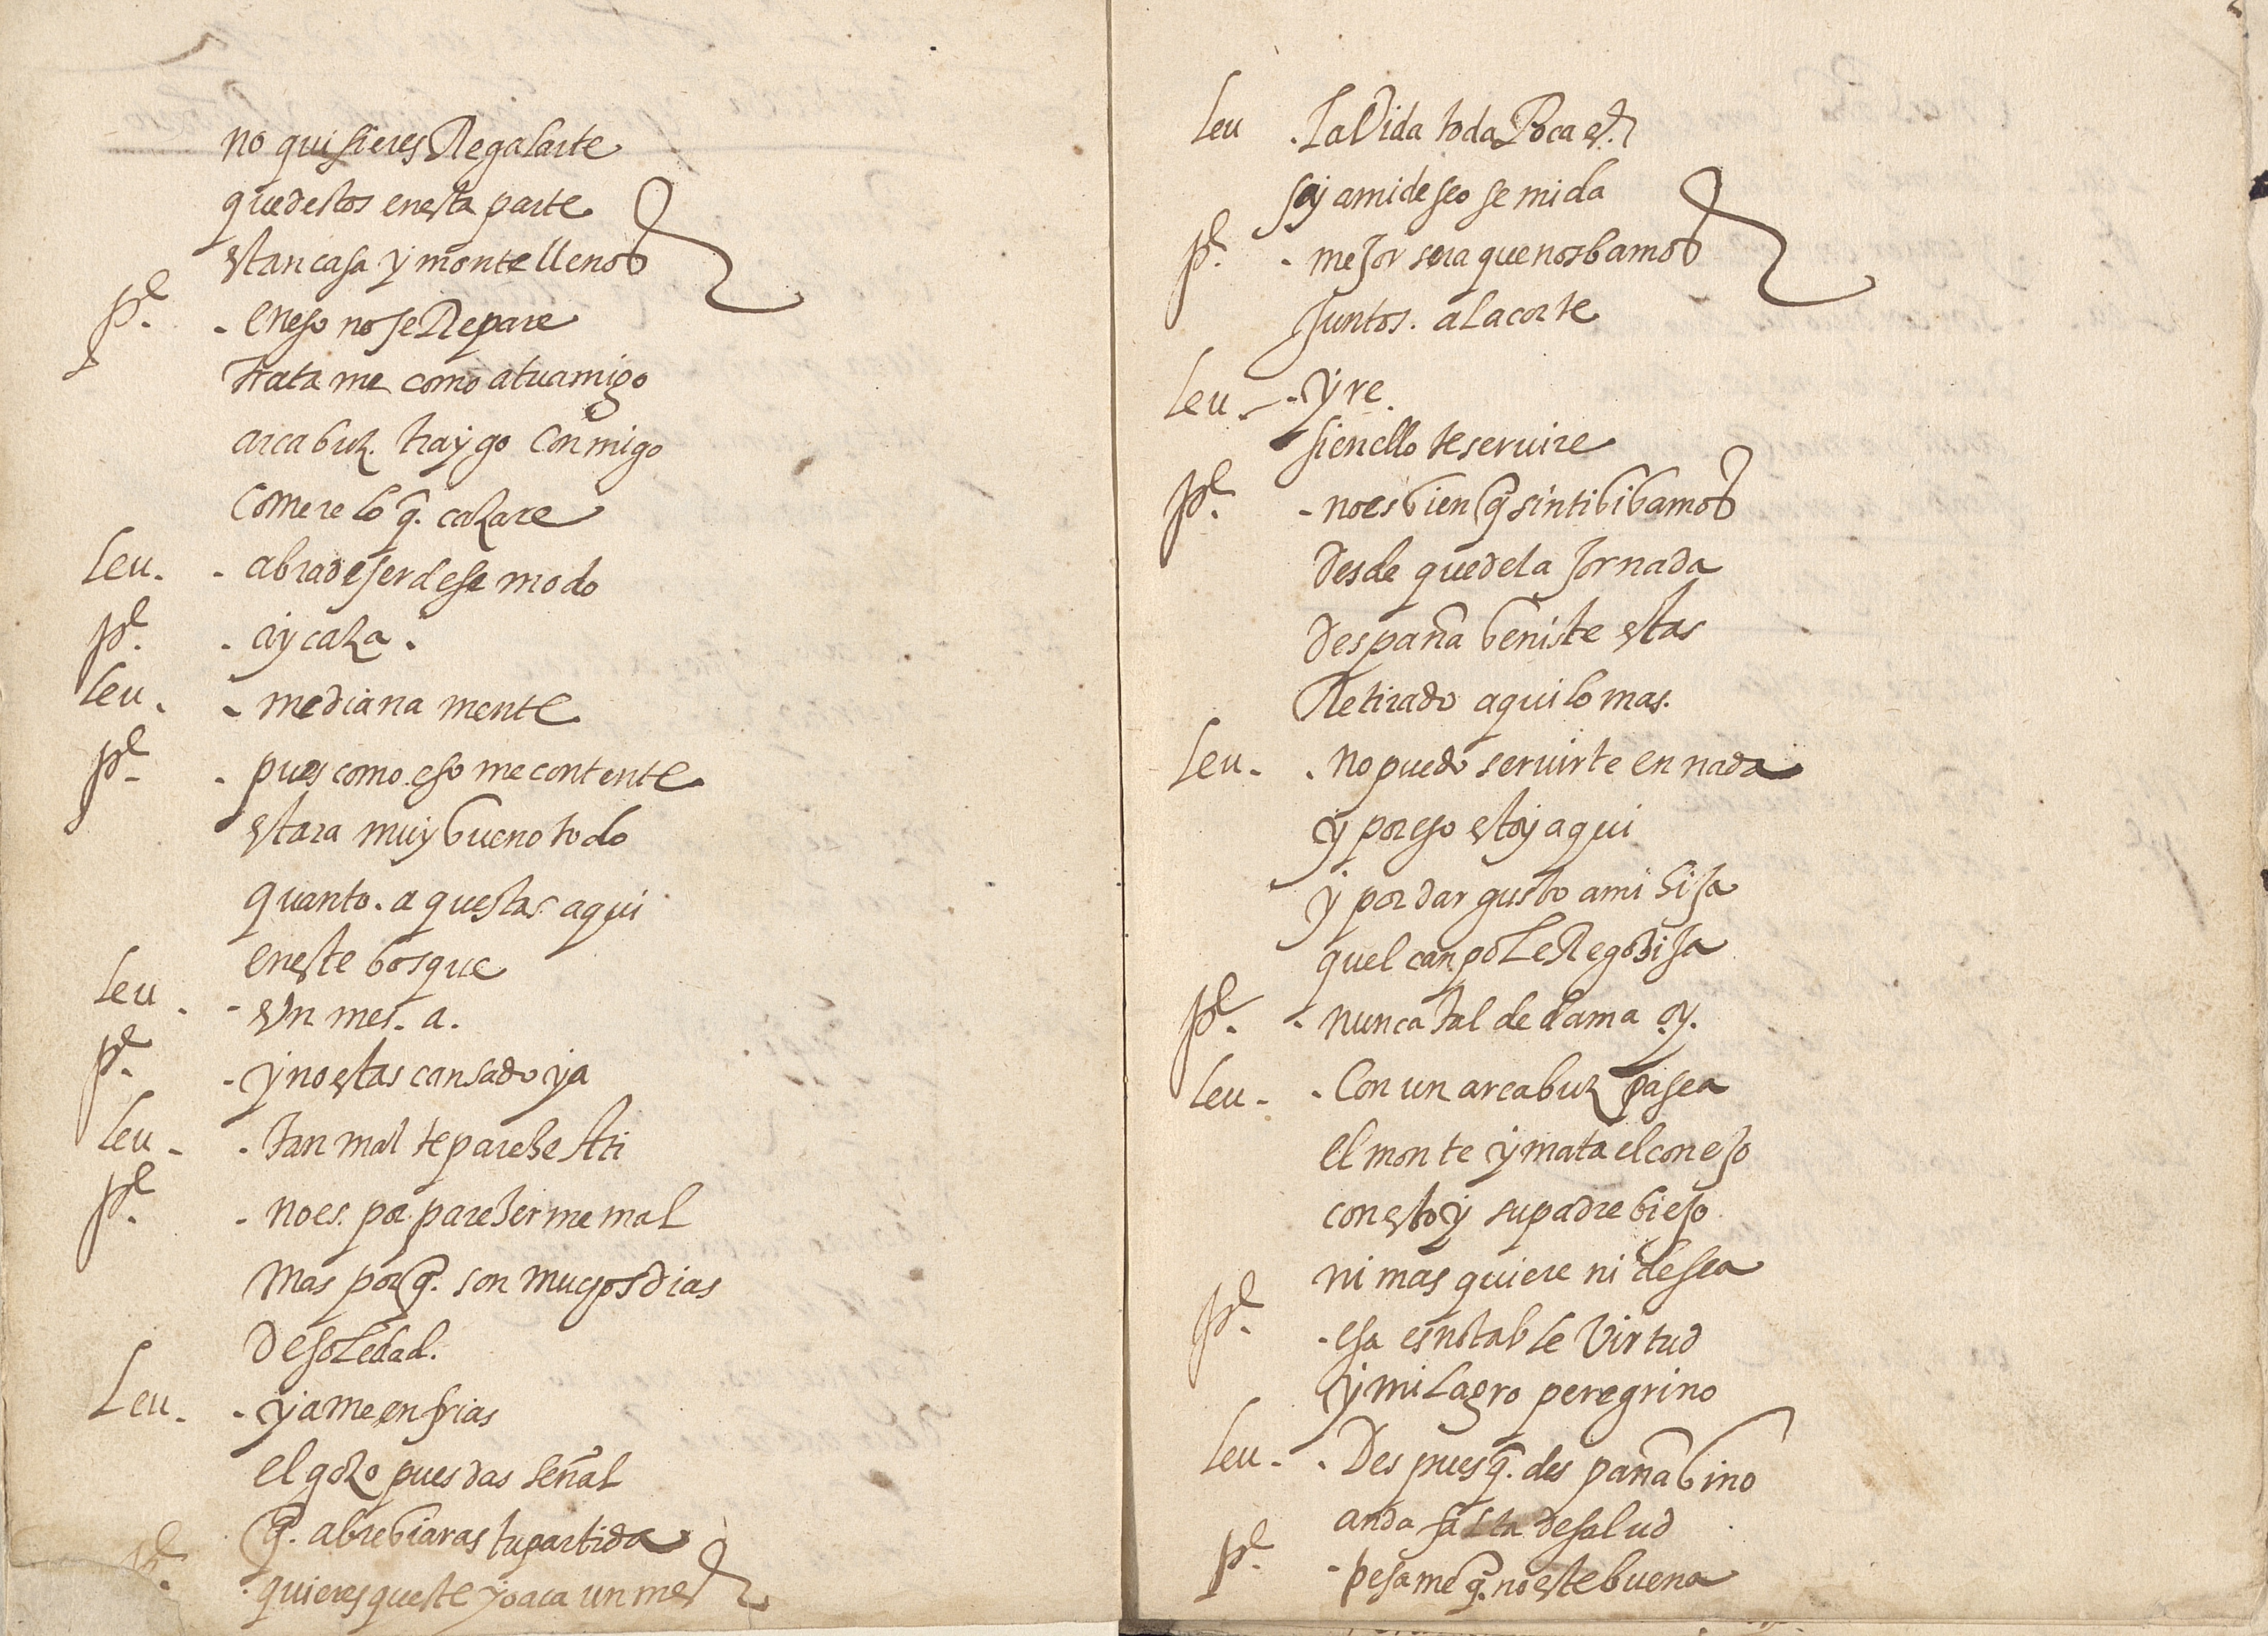 no quisieres Regalarte
quedestos enesta parte
estan casa y monte llenos
Pe. - eneso nose Repare
trata me como atuamigo
arcabuz. traygo conmigo
comere lo q. cazare
Leu. - abradeser dese modo
Pe. - ay caza.
Leu. - mediana mente
Pe. - pues como eso me contente
estara muy bueno todo
quanto. a questas aqui
eneste bosque
Leu. - un mes. a.
Pe. - y no estas cansado ya
Leu. - tan mal te pareze Ati
Pe. - noes. por parezerme mal
mas porq. son muchos dias
desoledad.
Leu. - ya me enfrias
el gozo pues das señal
q. abrebiaras tu partida
Pe. - quieres queste yo aca un mes
Leu. - la Vida toda Poca es.
si amideseo se mida
Pe. - meJor sera que nos bamos
Juntos. ala corte
Leu. - yre.
sienello te seruire
Pe. - noes bien q sin ti bibamos
Desde quedela Jornada
Despaña beniste estas
Retirado aqui lo mas.
Leu. - no puedo seruirte en nada
y poreso estoy aqui
y por dar gusto ami hiJa
quel canpo le RegoziJa
Pe. - nunca tal de dama oy.
Leu. - Con un arcabuz pasea
el monte y mata el coneJo
con esto y su padre bieJo
ni mas quiere ni desea
Pe. - esa es notable Virtud
y milagro peregrino
Leu. - Despues q. despaña bino
anda falta de salud
Pe. - pesame q. no este buena